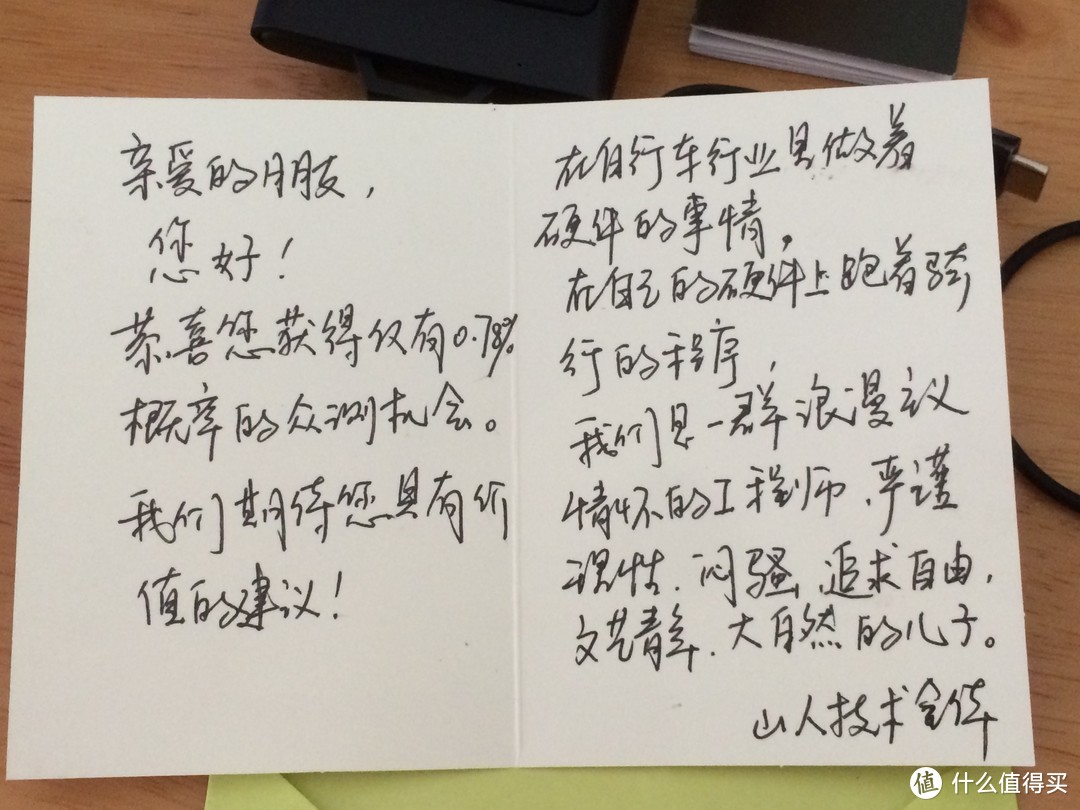 亲爱的朋友，
您好！
恭喜您获得仅有0.78%
概率的众测机会。
我们期待您具有价
值的建议！
在自行车行业里做着
硬件的事情，
在自己的硬件上跑着骑
行的程序，
我们是一群浪漫议
情怀的工程师，严谨
理性、闷骚、追求自由，
文艺青年、大自然的儿子。
山人技术全体
值 什么值得买